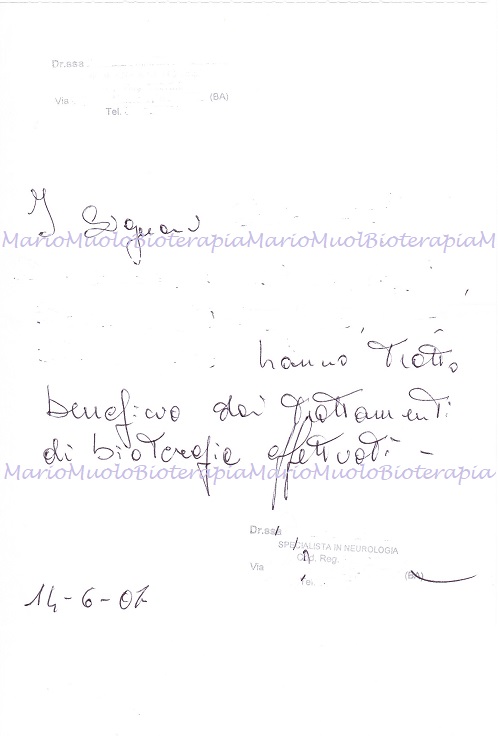 Dr.ssa
Via (BA)
Tel.
I Signori
MarioMuoloBioterapiaMarioMuolBioterapiaM
hanno tratto
beneficio dai trattamenti
di bioterapia effettuati -
MarioMuoloBioterapiaMarioMuoloBioterapia
Dr.ssa
SPECIALISTA IN NEUROLOGIA
Cod. Reg.
Via (BA)
Tel.
14-6-07